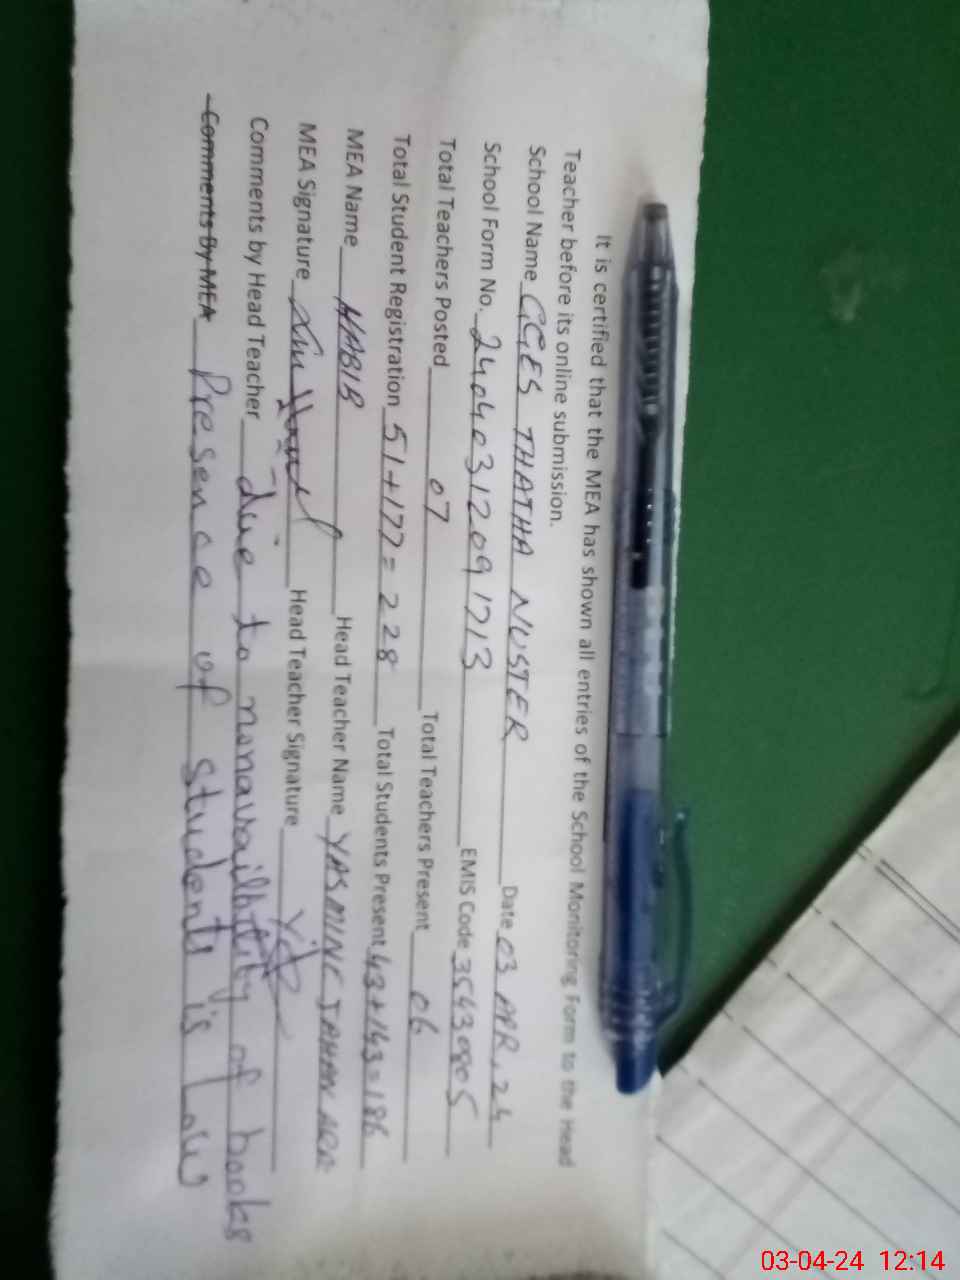 It is certified that the MEA has shown all entries of the School Monitoring Form to the Head
Teacher before its online submission.
School Name GGES THATHA NUSTER Date 03 APR, 24
School Form No. 240403120917 13 EMIS Code 35430805
Total Teachers Posted 07 Total Teachers Present 06
Total Student Registration 51+177= 228 Total Students Present 43+143=186
MEA Name HABIB Head Teacher Name YASMINE JAHAN ARA
MEA Signature Head Teacher Signature
Comments by Head Teacher due to nonavailbility of books
Comments By MEA Presence of students is Low
03-04-24 12:14